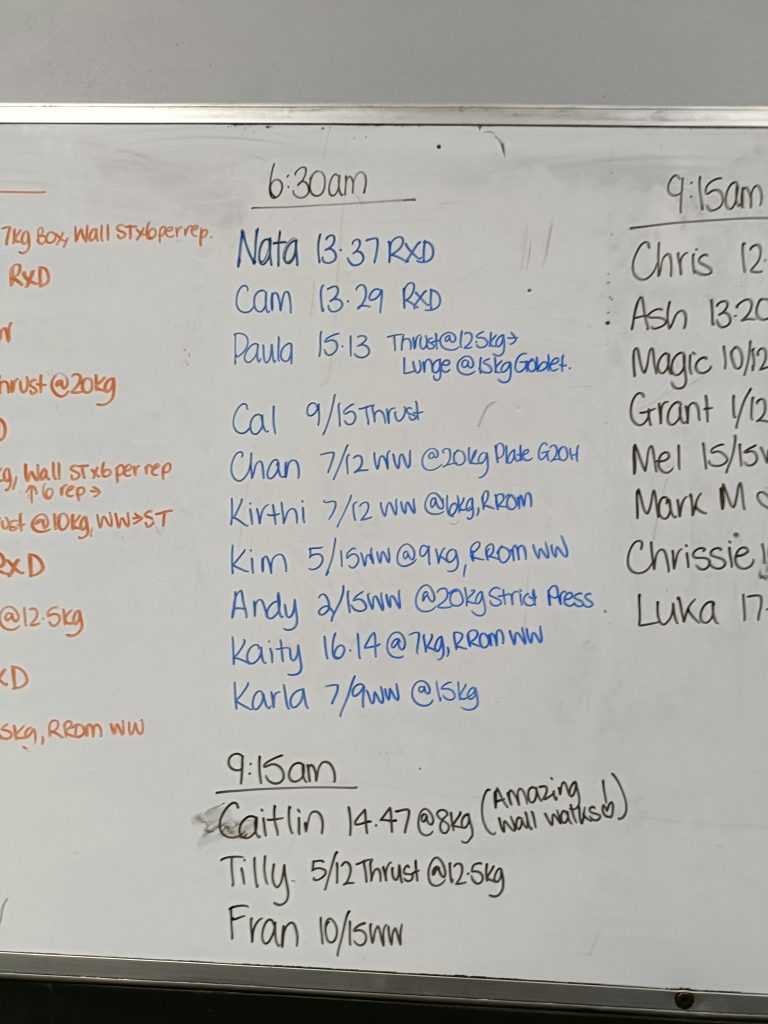 7kg Box, Wall STx6 per rep.
RXD
@20kg
Wall STx6 per rep
↑6 rep→
@10kg, WW→ST
RXD
@12.5kg
RROM WW
6:30am
Nata 13.37 RXD
Cam 13.29 RXD
Paula 15.13 Thrust@12.5kg→
Lunge @15kg Goblet.
Cal 9/15 Thrust
Chan 7/12 WW @20kg Plate G2OH
Kirthi 7/12 WW @6kg, RROM
Kim 5/15WW @9kg, RROM WW
Andy 2/15WW @20kg Strict Press.
Kaity 16.14 @7kg, RROM WW
Karla 7/9WW @15kg
9:15am
Caitlin 14.47 @8kg (Amazing
Wall Walks!)
Tilly 5/12 Thrust @12.5kg
Fran 10/15WW
9:15am
Chris 12.
Ash 13.20
Magic 10/12
Grant 1/12
Mel 15/15
Mark M
Chrissie
Luka 17.